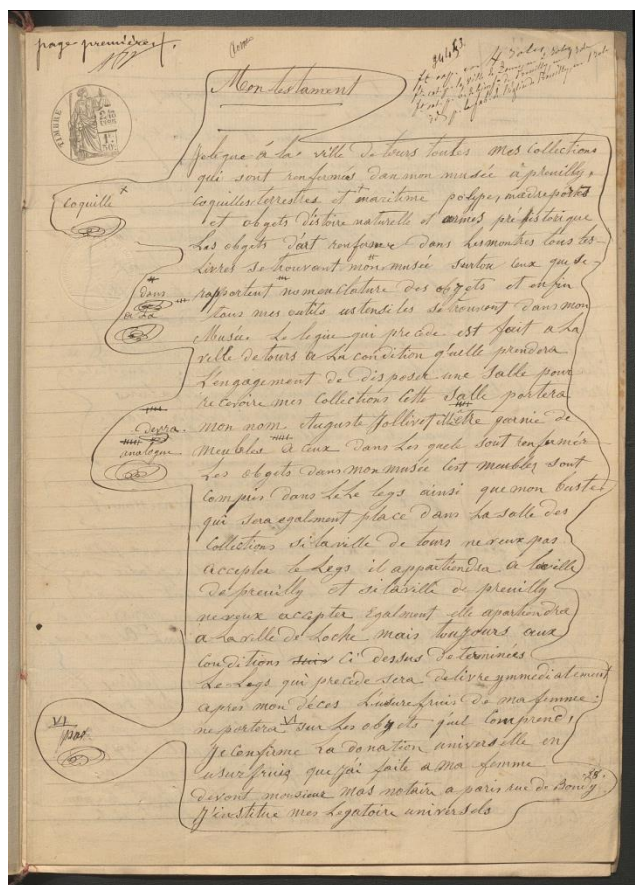 page première
Mon testament
TIMBRE
Je legue á la ville de tours toutes mes Collections
qui sont renfermés dan mon musée à preuilly,
Coquille
coquilles terrestres et maretime polipe, madreports
et obgets distoire naturelle et armes préhistorique
Les obgets d'art renfermé dans les montres tous les
Livres se trouvant mon musée surtou ceux que se
dans
rapportent nomenclature des obgets et enfin
a La
tous mes outils ustensiles se trouvent dans mon
Musée. Le legue qui precède est fait a La
ville de tours a La condition quelle prendera
L'engagement de disposer une Salle pour
recevoire mes Collections Cette Salle portera
devra
mon nom Auguste Jollivet être garnie de
analogue
meubles à ceux dans Les quels sont renfermér
Les obgets dans mon musée Cest meubles sont
Compris dans Le legs ainsi que mon buste
qui sera egalement place dans La salle des
Collections si la ville de tours ne veux pas
accepter le Legs il appartiendra a la ville
de preuilly et si la ville de preuilly
ne veux accepter Egalment elle apartiendra
a La ville de Loche mais toujours aux
Conditions ci dessus determinées
Le Legs qui precède sera delivre ymmediatement
apres mon déces L'usufruis de ma femme
VI pas
ne portera VI sur Les obgets quel Comprend,
Je Confirme La donation universelle en
usufruis que j'ai faite a ma femme
devant monsieur mas notaire a paris rue de Bondy 28.
J'institue mes Legatoire universels